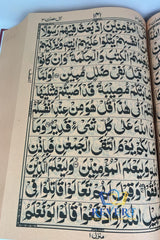 الْمُؤْمِنِيْنَ اِذْ بَعَثَ فِيْهِمْ رَسُوْلًا
اَنْفُسِهِمْ يَتْلُوْا عَلَيْهِمْ اٰيٰتِهٖ وَيُزَكِّيْهِمْ
وَيُعَلِّمُهُمُ الْكِتٰبَ وَالْحِكْمَةَ وَاِنْ كَانُوْا
مِنْ قَبْلُ لَفِيْ ضَلٰلٍ مُّبِيْنٍ اَوَلَمَّآ
اَصَابَتْكُمْ مُّصِيْبَةٌ قَدْ اَصَبْتُمْ مِّثْلَيْهَا
قُلْتُمْ اَنّٰى هٰذَا قُلْ هُوَ مِنْ عِنْدِ اَنْفُسِكُمْ
اِنَّ اللّٰهَ عَلٰى كُلِّ شَيْءٍ قَدِيْرٌ وَمَآ
اَصَابَكُمْ يَوْمَ الْتَقَى الْجَمْعٰنِ فَبِاِذْنِ
اللّٰهِ وَلِيَعْلَمَ الْمُؤْمِنِيْنَ وَلِيَعْلَمَ الَّذِيْنَ
نَافَقُوْا وَقِيْلَ لَهُمْ تَعَالَوْا قَاتِلُوْا فِيْ
سَبِيْلِ اللّٰهِ اَوِ ادْفَعُوْا قَالُوْا لَوْ نَعْلَمُ